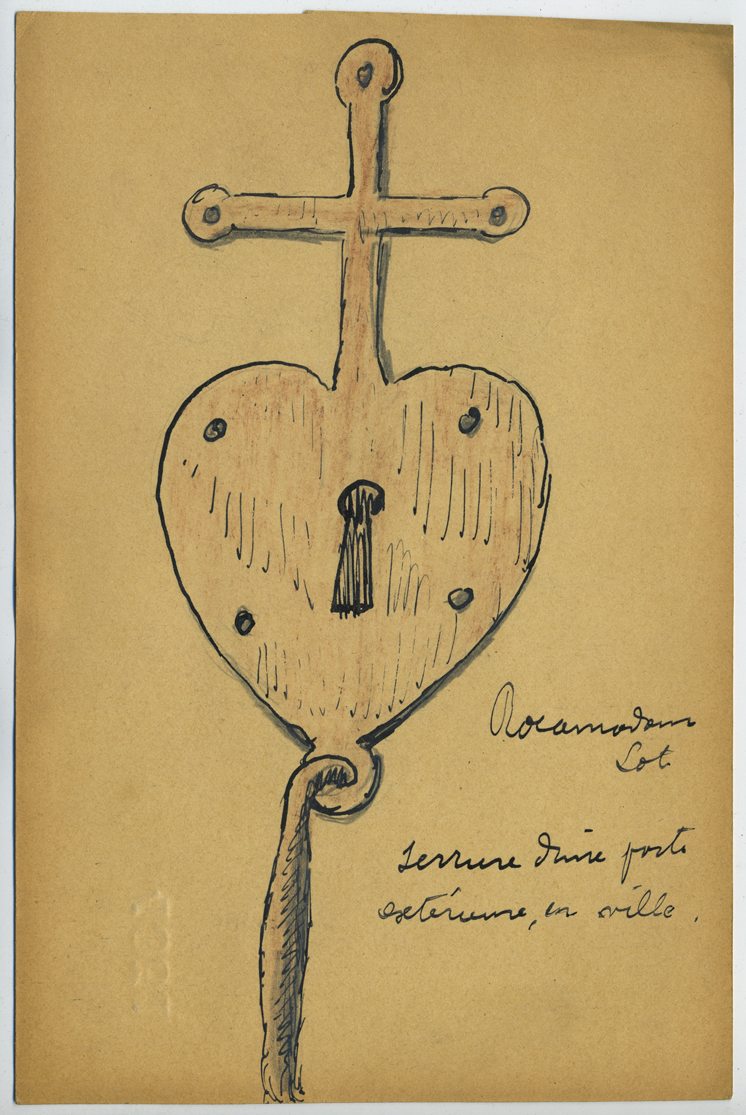 Rocamadour
Lot
serrure d'une porte
extérieure, en ville.